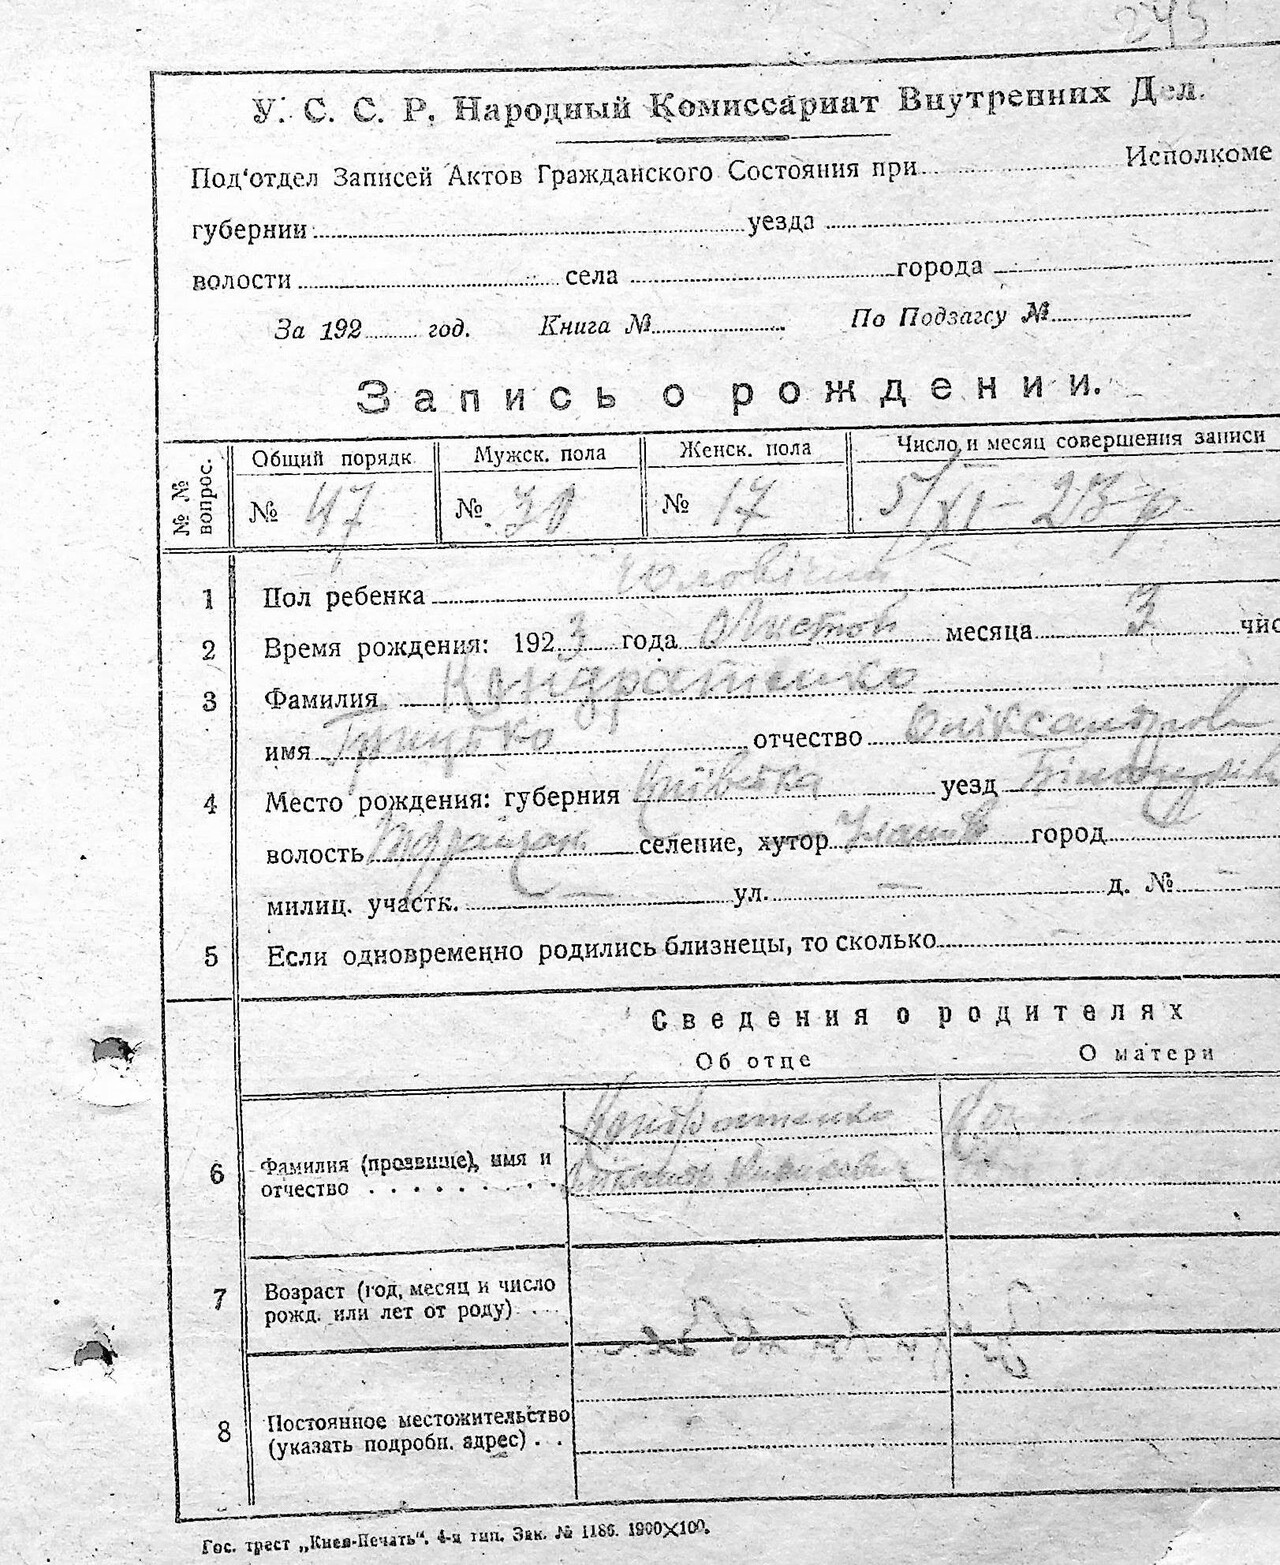 245
У. С. С. Р. Народный Комиссариат Внутренних Дел.
Под'отдел Записей Актов Гражданского Состояния при Исполкоме
губернии уезда
волости села города
За 192 год. Книга № По Подзагсу №
Запись о рождении.
№ № вопрос. Общий порядк. Мужск. пола Женск. пола Число и месяц совершения записи
№ 47 № 30 № 17 5/XI - 23 р.
1 Пол ребенка Чоловічий
2 Время рождения: 1923 года месяца 3 чис
3 Фамилия Кондратенко
имя Грицько отчество Олександров
4 Место рождения: губерния Київська уезд
волость селение, хутор город
милиц. участк. — ул. — д. № —
5 Если одновременно родились близнецы, то сколько —
Сведения о родителях
Об отце О матери
6 Фамилия (прозвище), имя и отчество Кондратенко
7 Возраст (год, месяц и число рожд. или лет от роду)
8 Постоянное местожительство (указать подробн. адрес)
Гос. трест „Киев-Печать“. 4-я тип. Зак. № 1186. 1900×100.